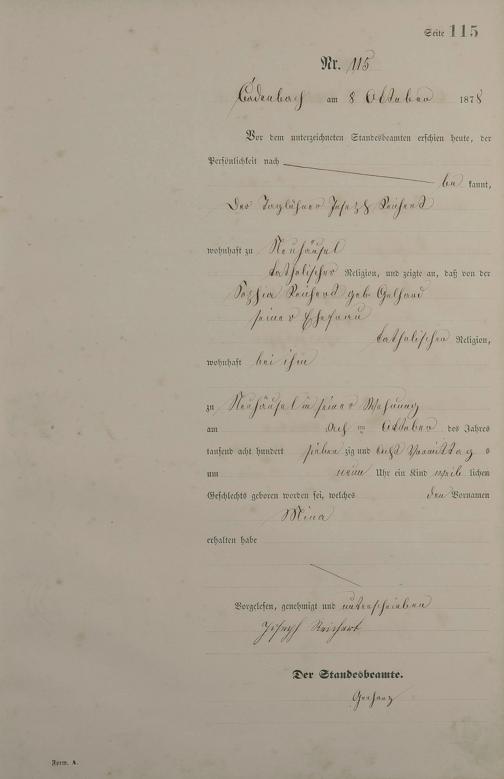 Seite 115
Nr. 115
Cadenbach am 8 Oktober 1878
Vor dem unterzeichneten Standesbeamten erschien heute, der
Persönlichkeit nach
be kannt,
Der Taglöhner Joseph Reichert
wohnhaft zu Neuhäusel
katholischer Religion, und zeigte an, daß von der
Sophia Reichert geb Gelhard
seiner Ehefrau
katholischer Religion,
wohnhaft bei ihm
zu Neuhäusel in seiner Wohnung
am Oktober des Jahres
tausend acht hundert sieben zig und acht Vormittag s
um neun Uhr ein Kind weib lichen
Geschlechts geboren worden sei, welches den Vornamen
Mina
erhalten habe
Vorgelesen, genehmigt und unterschrieben
Joseph Reichert
Der Standesbeamte.
Form. A.